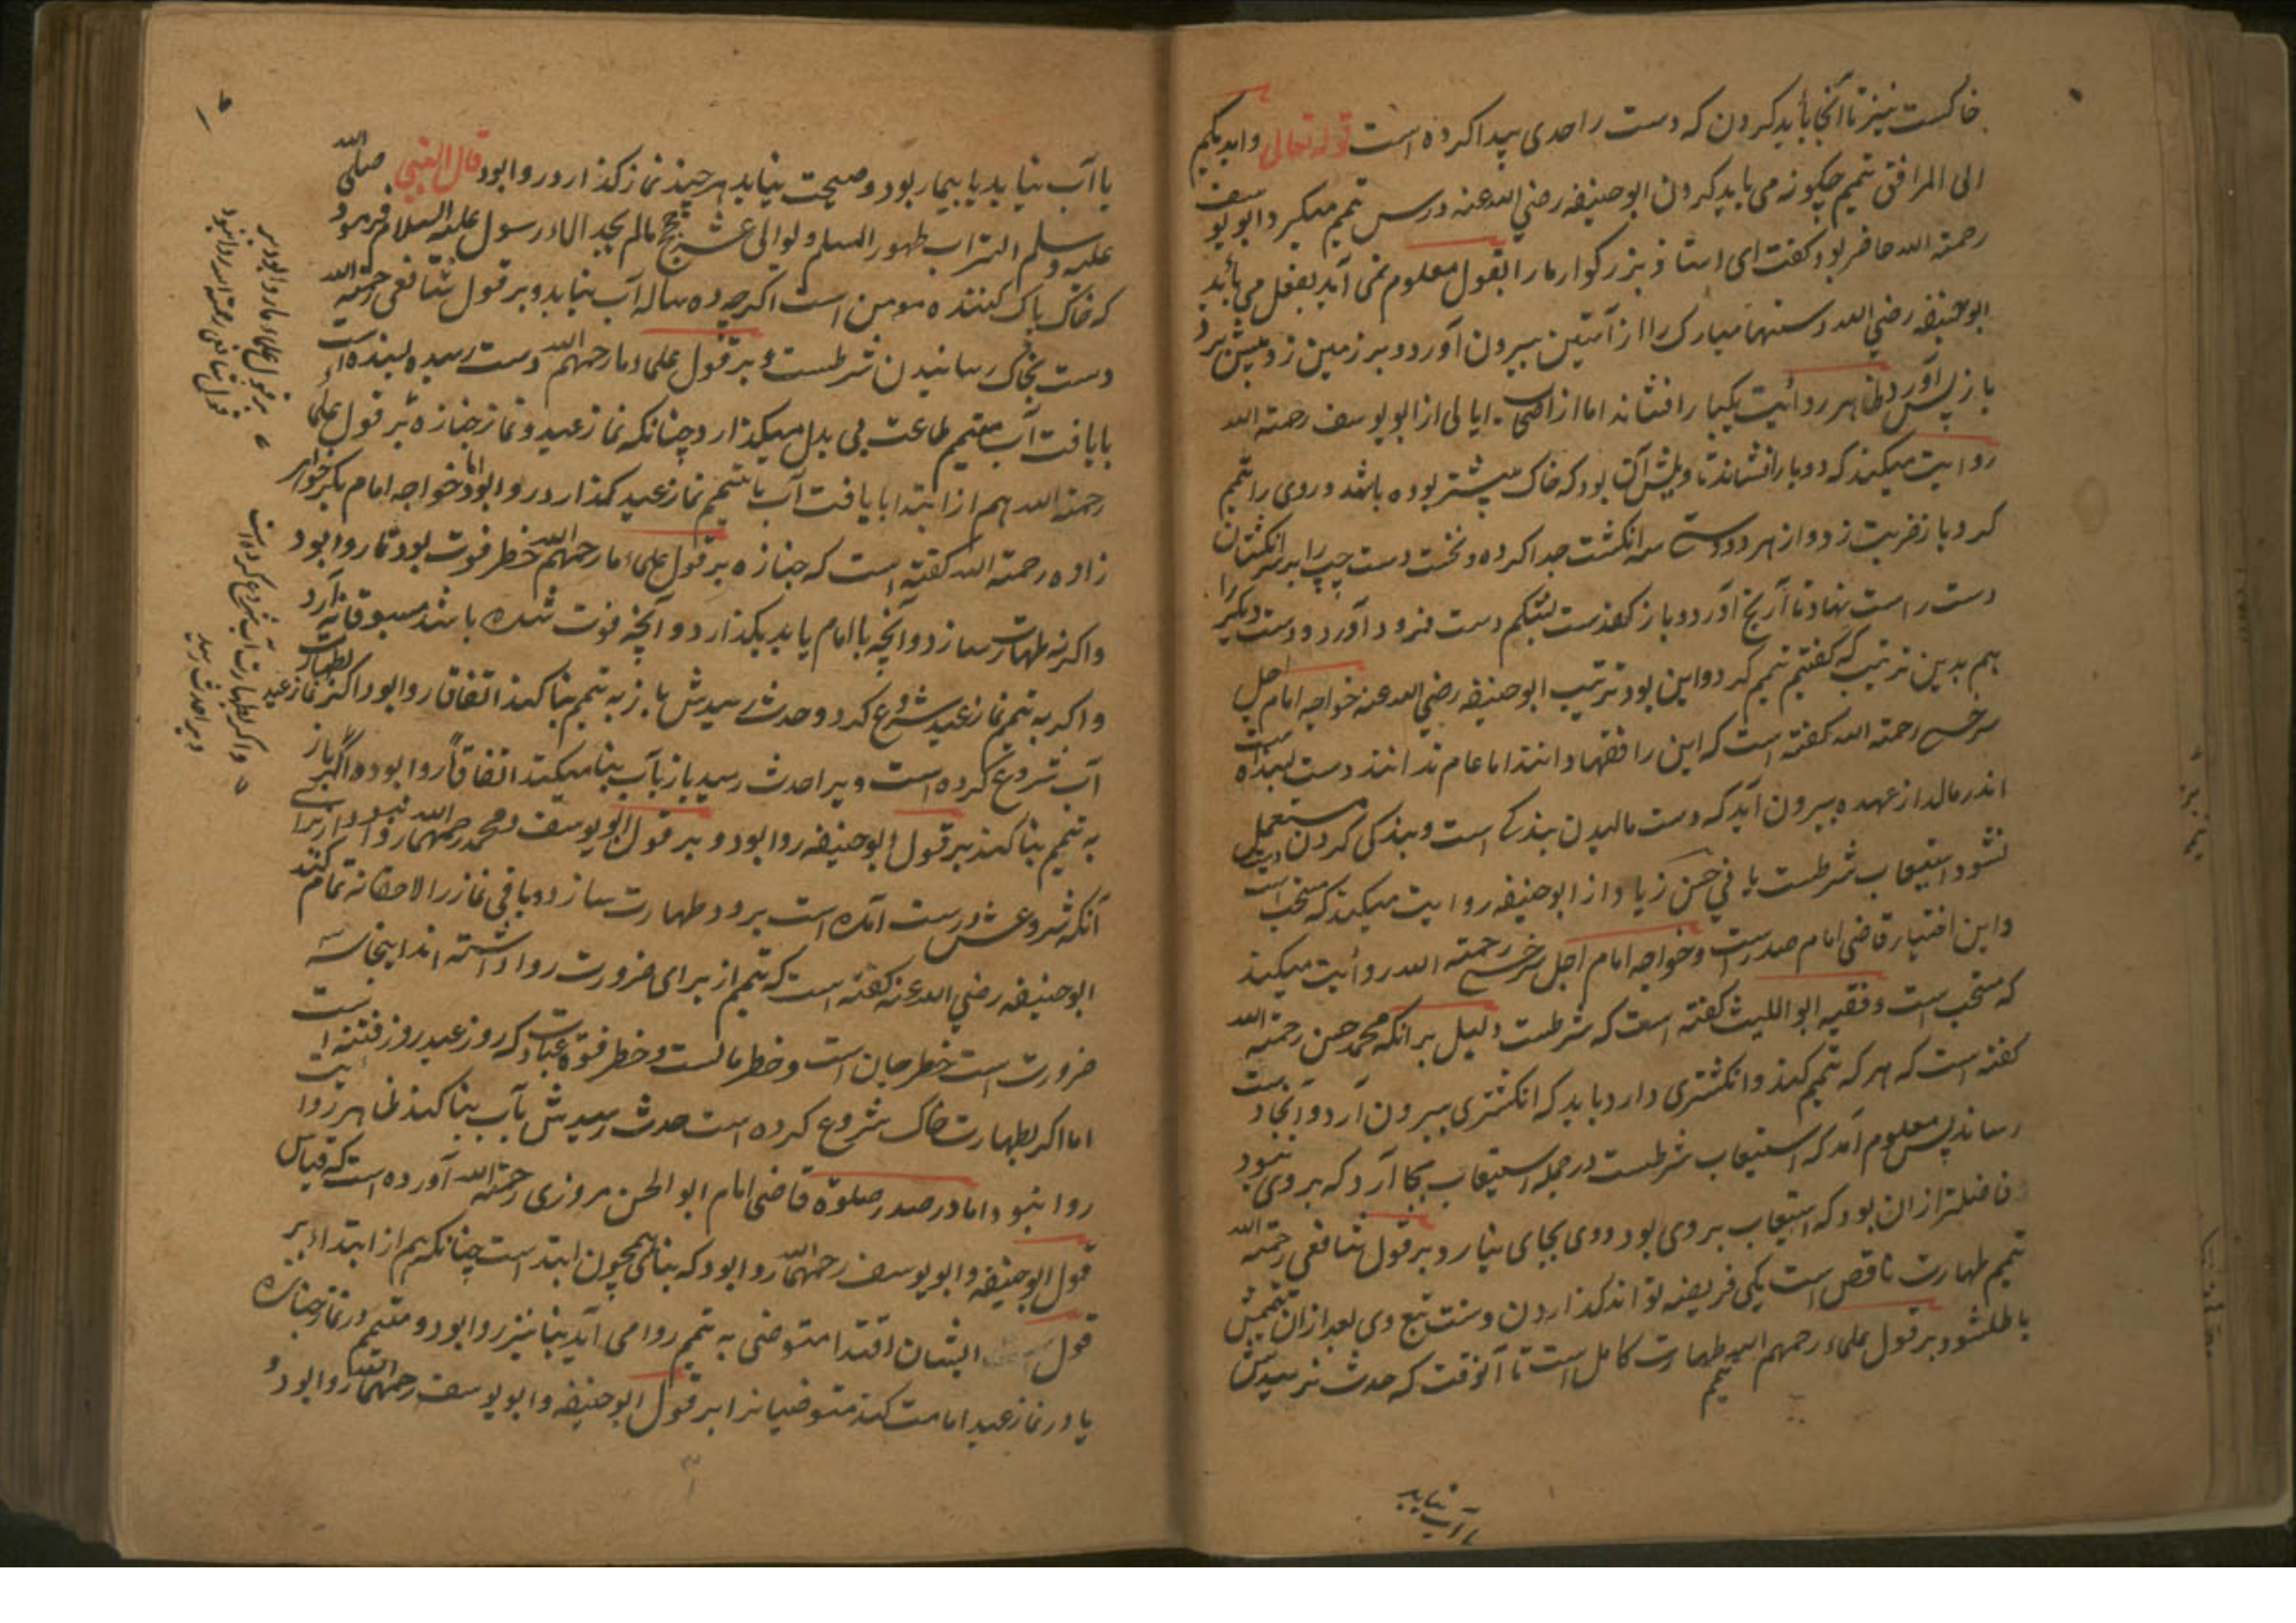 خاکست نیز تا آنجا باید کردن که دست را حدی پیدا کرده است قوله تعالی وایدیکم
الی المرافق تیمم چگونه می باید کردن ابوحنیفه رضی الله عنه درس تیمم میکرد وابو یوسف
رحمته الله حاضر بود گفت ای استاذ بزرکوار مارا بقول معلوم نمی آید بفعل می باید
ابوحنیفه رضی الله دستهاء مبارک را از آستین بیرون آورد و بر زمین زد و پیش برد
باز پس آورد ظاهر روایت یکبار افشاند اما از اصحاب ابویوسف رحمته الله
روایت میکنند که دوبار افشاند تاویلش آن بود که خاک بیشتر بوده باشد و روی را تیمم
کرد باز ضربت زد و از هر دو دست سه انکشت جدا کرده و نخست دست چپ را بر سر انکشتان
دست راست نهاد تا آرنج آورد و باز کف دست بشکم دست فرود آورد و دست دیکر را
هم بدین ترتیب که گفتیم تیمم کرد و این بود ترتیب ابوحنیفه رضی الله عنه خواجه امام اجل
سرخسی رحمته الله گفته است که این را فقها دانند اما عام ندانند دست بسنده است
اندر مالد از عهده بیرون آید که دست مالیدن بندکی است و بندکی کردن دست مستعمل
نشود استیعاب شرطست یا نی حسن زیاد از ابوحنیفه روایت میکند که مستحب است
و این اختیار قاضی امام صدر است و خواجه امام اجل سرخسی رحمته الله روایت میکند
که مستحب است و فقیه ابواللیث گفته است که شرطست دلیل بر انکه محمد حسن رحمته الله
گفته است که هر که تیمم کند و انکشتری دارد باید که انکشتری بیرون آرد و آنجا دست
رساند پس معلوم آمد که استیعاب شرطست در جمله استیعاب بجا آرد که بر وی نبود
فاضلتر از ان بود که استیعاب بر وی بود و وی بجای نیارد و بر قول شافعی رحمته الله
تیمم طهارت ناقص است یکی فریضه تواند گذاردن و سنت تبع وی بعد از ان تیممش
باطل شود بر قول علماء رحمهم الله تیمم طهارت کامل است تا آنوقت که حدث نرسیدش
یا آب نیابد
یا آب نیابد یا بیمار بود و صحت نیابد هر چند نماز گذارد روا بود قال النبی صلی الله
علیه وسلم التراب طهور المسلم ولو الی عشر حجج مالم یجد الماء رسول علیه السلام فرمود
که خاک پاک کننده مومن است اگرچه ده سال آب نیابد و بر قول شافعی رحمته الله
دست بخاک رسانیدن شرطست و بر قول علماء ما رحمهم الله دست رسیده بسنده است
با یافت آب مقیم طاعت بی بدل میکذارد چنانکه نماز عید و نماز جنازه بر قول علماء
رحمته الله هم از ابتدا با یافت آب با تیمم نماز عید گذارد روا بود اما خواجه امام بکر خواهر
زاده رحمته الله گفته است که جنازه بر قول علماء ما رحمهم الله خطر فوت بود تا روا بود
و اگر نه طهارت سازد و آنچه با امام یابد بکذارد و آنچه فوت شده باشد مسبوقانه آرد
و اگر به تیمم نماز عید شروع کرد و حدث رسیدش باز به تیمم بنا کند اتفاق روا بود و اکر نماز عید بطهارت
آب شروع کرده است و یرا حدث رسید باز بآب بنا میکند اتفاقا روا بود و اگر باز
به تیمم بنا کند بر قول ابوحنیفه روا بود و بر قول ابویوسف و محمد رحمهما الله روا نبود از برای
آنکه شروعش درست آمده است برود طهارت سازد و باقی نماز را لاحقانه تمام کند
ابوحنیفه رضی الله عنه گفته است که تیمم از برای ضرورت روا داشته اند اینجا سه
ضرورت است خطر جان است و خطر مالست و خطر فوت عبادت که روز عید روز فتنه است
اما اکر بطهارت خاک شروع کرده است حدث رسیدش بآب بنا کند ظاهر روایت
روا نبود و اما در صدر صلوة قاضی امام ابوالحسن مروزی رحمته الله آورده است که قیاس
قول ابوحنیفه و ابویوسف رحمهما الله روا بود که بنا همچون ابتداست چنانکه هم از ابتداء بر
قول ایشان اقتدا متوضی به تیمم روا می آید بنا نیز روا بود و متیمم در نماز جنازه
یا در نماز عید امامت کند متوضیانرا بر قول ابوحنیفه و ابویوسف رحمهما الله روا بود و
بر قول علماء ما روا بود بر
قول شافعی رحمته الله روا نبود
و اکر بطهارت آب شروع کرده است
و یرا حدث رسید